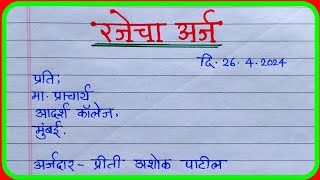 रजेचा अर्ज
दि. 26.4.2024
प्रति,
मा. प्राचार्य
आदर्श कॉलेज,
मुंबई.
अर्जदार - प्रीती अशोक पाटील